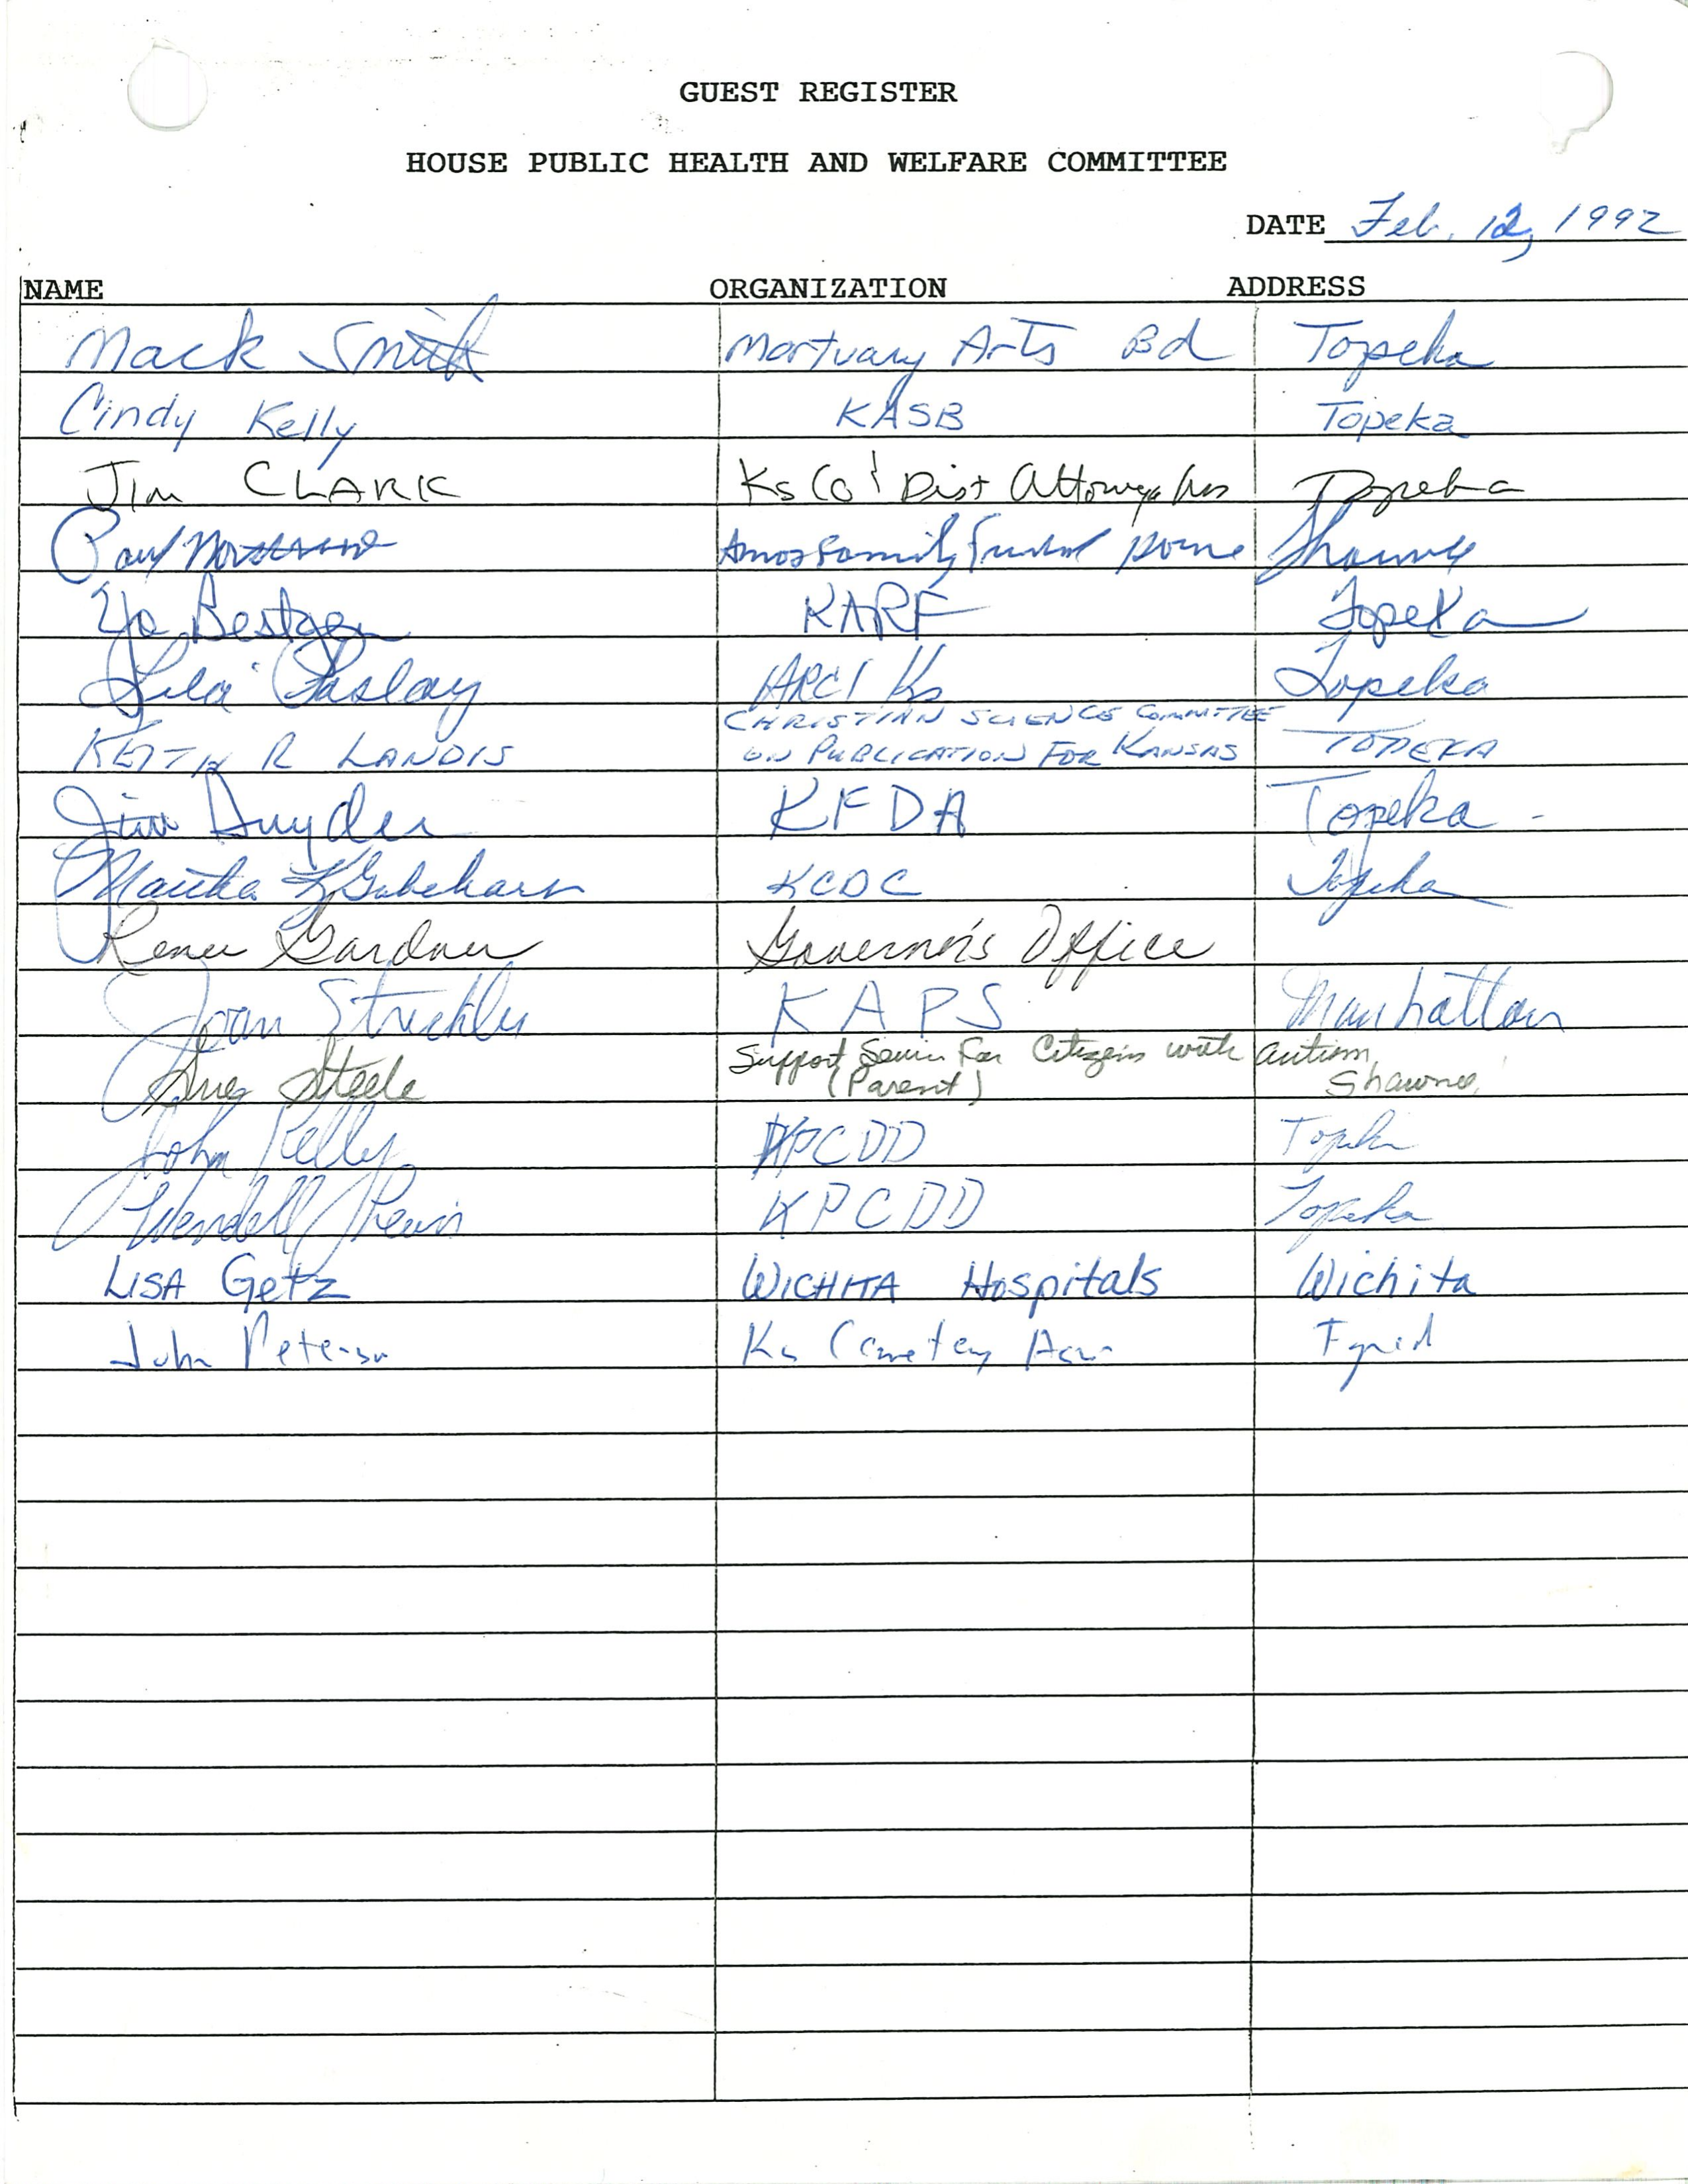 GUEST REGISTER
HOUSE PUBLIC HEALTH AND WELFARE COMMITTEE
DATE Feb. 12, 1992
NAME ORGANIZATION ADDRESS
Mack Smith Mortuary Arts Bd Topeka
Cindy Kelly KASB Topeka
Jim CLARK Ks Co & Dist Attorneys Topeka
Paul Amos Family Funeral Home Shawnee
Yo Bestgen KARF Topeka
Lila Paslay ARC/Ks Topeka
CHRISTIAN SCIENCE COMMITTEE
KEITH R LANDIS ON PUBLICATION FOR KANSAS TOPEKA
Jim Snyder KFDA Topeka
Martha K Gabehart KCDC Topeka
Renee Gardner Governor's Office
Joan Strickler KAPS Manhattan
Support Service For Citizens with autism,
Sue Steele (Parent) Shawnee
John Kelly KPCDD Topeka
Wendell Lewis KPCDD Topeka
LISA Getz WICHITA Hospitals Wichita
John Peterson Ks Cemetery Assn